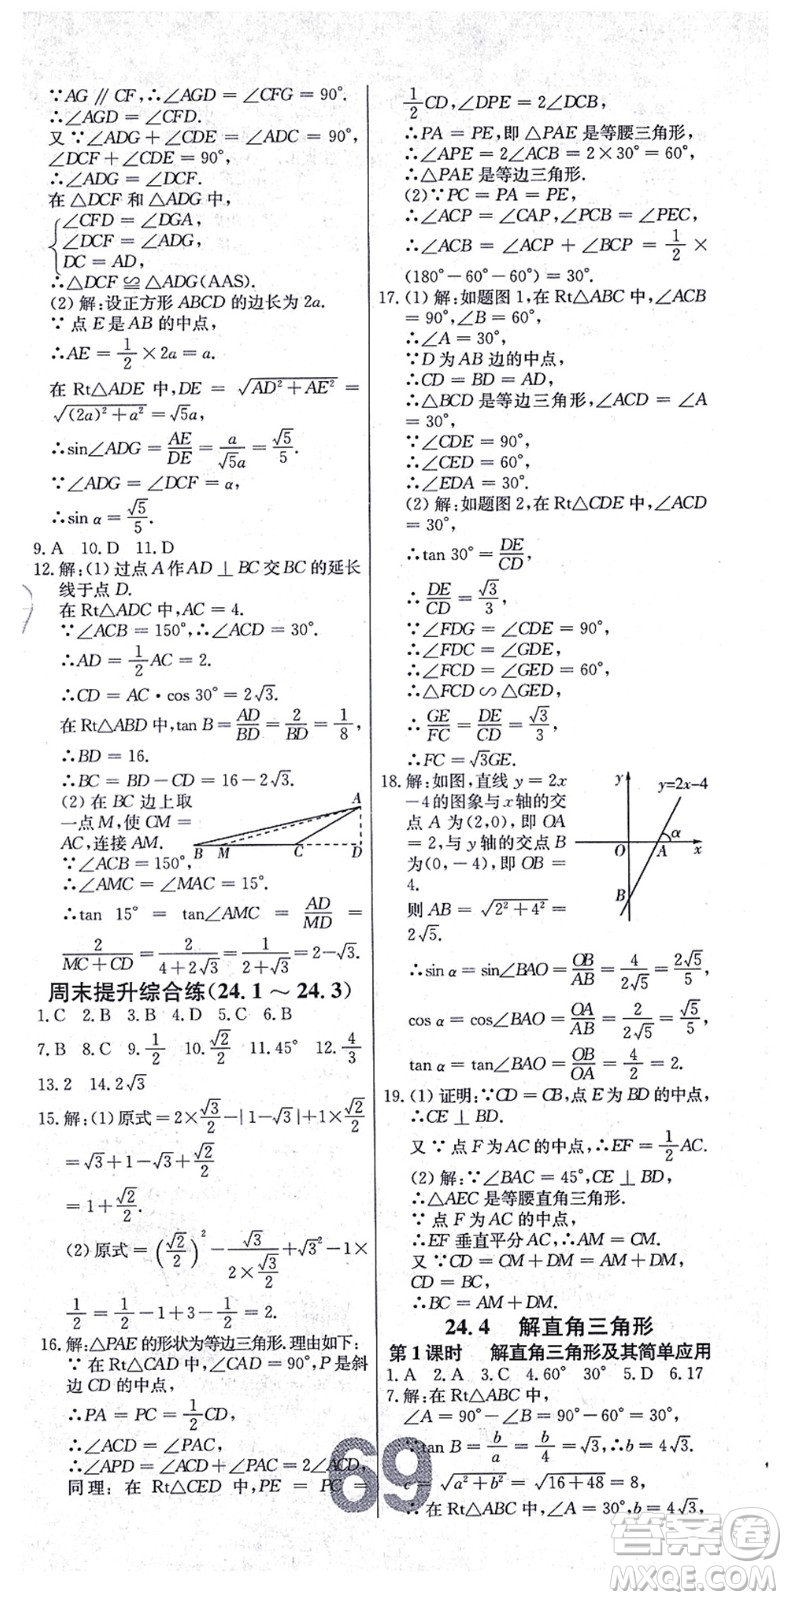 ∵AG∥CF,∴∠AGD=∠CFG=90°.
∴∠AGD=∠CFD.
又∵∠ADG+∠CDE=∠ADC=90°,
∠DCF+∠CDE=90°,
∴∠ADG=∠DCF.
在△DCF和△ADG中,
{∠CFD=∠DGA,
∠DCF=∠ADG,
DC=AD,
∴△DCF≌△ADG(AAS).
(2)解:设正方形ABCD的边长为2a.
∵点E是AB的中点,
∴AE=1/2×2a=a.
在Rt△ADE中,DE=√(AD²+AE²)=
√((2a)²+a²)=√5a,
∴sin∠ADG=AE/DE=a/(√5a)=√5/5.
∵∠ADG=∠DCF=α,
∴sin α=√5/5.
9.A 10.D 11.D
12.解:(1)过点A作AD⊥BC交BC的延长
线于点D.
在Rt△ADC中,AC=4.
∵∠ACB=150°,∴∠ACD=30°.
∴AD=1/2AC=2.
∴CD=AC·cos 30°=2√3.
在Rt△ABD中,tan B=AD/BD=2/BD=1/8,
∴BD=16.
∴BC=BD-CD=16-2√3.
(2)在BC边上取
一点M,使CM=
AC,连接AM.
A
B M C D
∵∠ACB=150°,
∴∠AMC=∠MAC=15°.
∴tan 15°=tan∠AMC=AD/MD=
2/(MC+CD)=2/(4+2√3)=1/(2+√3)=2-√3.
周末提升综合练(24.1~24.3)
1.C 2.B 3.B 4.D 5.C 6.B
7.B 8.C 9.1/2 10.√2/2 11.45° 12.4/3
13.2 14.2√3
15.解:(1)原式=2×√3/2-|1-√3|+1×√2/2
=√3+1-√3+√2/2
=1+√2/2.
(2)原式=(√2/2)²-√3/(2×√3/2)+√3²-1×
1/2=1/2-1+3-1/2=2.
16.解:△PAE的形状为等边三角形.理由如下:
∵在Rt△CAD中,∠CAD=90°,P是斜
边CD的中点,
∴PA=PC=1/2CD,
∴∠ACD=∠PAC,
∴∠APD=∠ACD+∠PAC=2∠ACD,
同理:在Rt△CED中,PE=PC=
1/2CD,∠DPE=2∠DCB,
∴PA=PE,即△PAE是等腰三角形,
∴∠APE=2∠ACB=2×30°=60°,
∴△PAE是等边三角形.
(2)∵PC=PA=PE,
∴∠ACP=∠CAP,∠PCB=∠PEC,
∴∠ACB=∠ACP+∠BCP=1/2×
(180°-60°-60°)=30°.
17.(1)解:如题图1,在Rt△ABC中,∠ACB
=90°,∠B=60°,
∴∠A=30°.
∵D为AB边的中点,
∴CD=BD=AD,
∴△BCD是等边三角形,∠ACD=∠A
=30°.
∵∠CDE=90°,
∴∠CED=60°,
∴∠EDA=30°.
(2)解:如题图2,在Rt△CDE中,∠ACD
=30°,
∴tan 30°=DE/CD,
∴DE/CD=√3/3,
∵∠FDG=∠CDE=90°,
∴∠FDC=∠GDE,
∴∠FCD=∠GED=60°,
∴△FCD∽△GED,
∴GE/FC=DE/CD=√3/3,
∴FC=√3GE.
18.解:如图,直线y=2x
-4的图象与x轴的交
点A为(2,0),即OA
=2,与y轴的交点B
为(0,-4),即OB=
4.
y y=2x-4
α
O A x
B
则AB=√(2²+4²)=
2√5.
∴sin α=sin∠BAO=OB/AB=4/(2√5)=2√5/5,
cos α=cos∠BAO=OA/AB=2/(2√5)=√5/5,
tan α=tan∠BAO=OB/OA=4/2=2.
19.(1)证明:∵CD=CB,点E为BD的中点,
∴CE⊥BD.
又∵点F为AC的中点,∴EF=1/2AC.
(2)解:∵∠BAC=45°,CE⊥BD,
∴△AEC是等腰直角三角形.
∵点F为AC的中点,
∴EF垂直平分AC,∴AM=CM.
又∵CD=CM+DM=AM+DM,
CD=CB,
∴BC=AM+DM.
24.4 解直角三角形
第1课时 解直角三角形及其简单应用
1.A 2.A 3.C 4.60° 30° 5.D 6.17
7.解:在Rt△ABC中,
∠A=90°-∠B=90°-60°=30°.
∵tan B=b/a=b/4=√3,∴b=4√3,
c=√(a²+b²)=√(16+48)=8,
∴在Rt△ABC中,∠A=30°,b=4√3,
69
答案圈
MXQE.COM